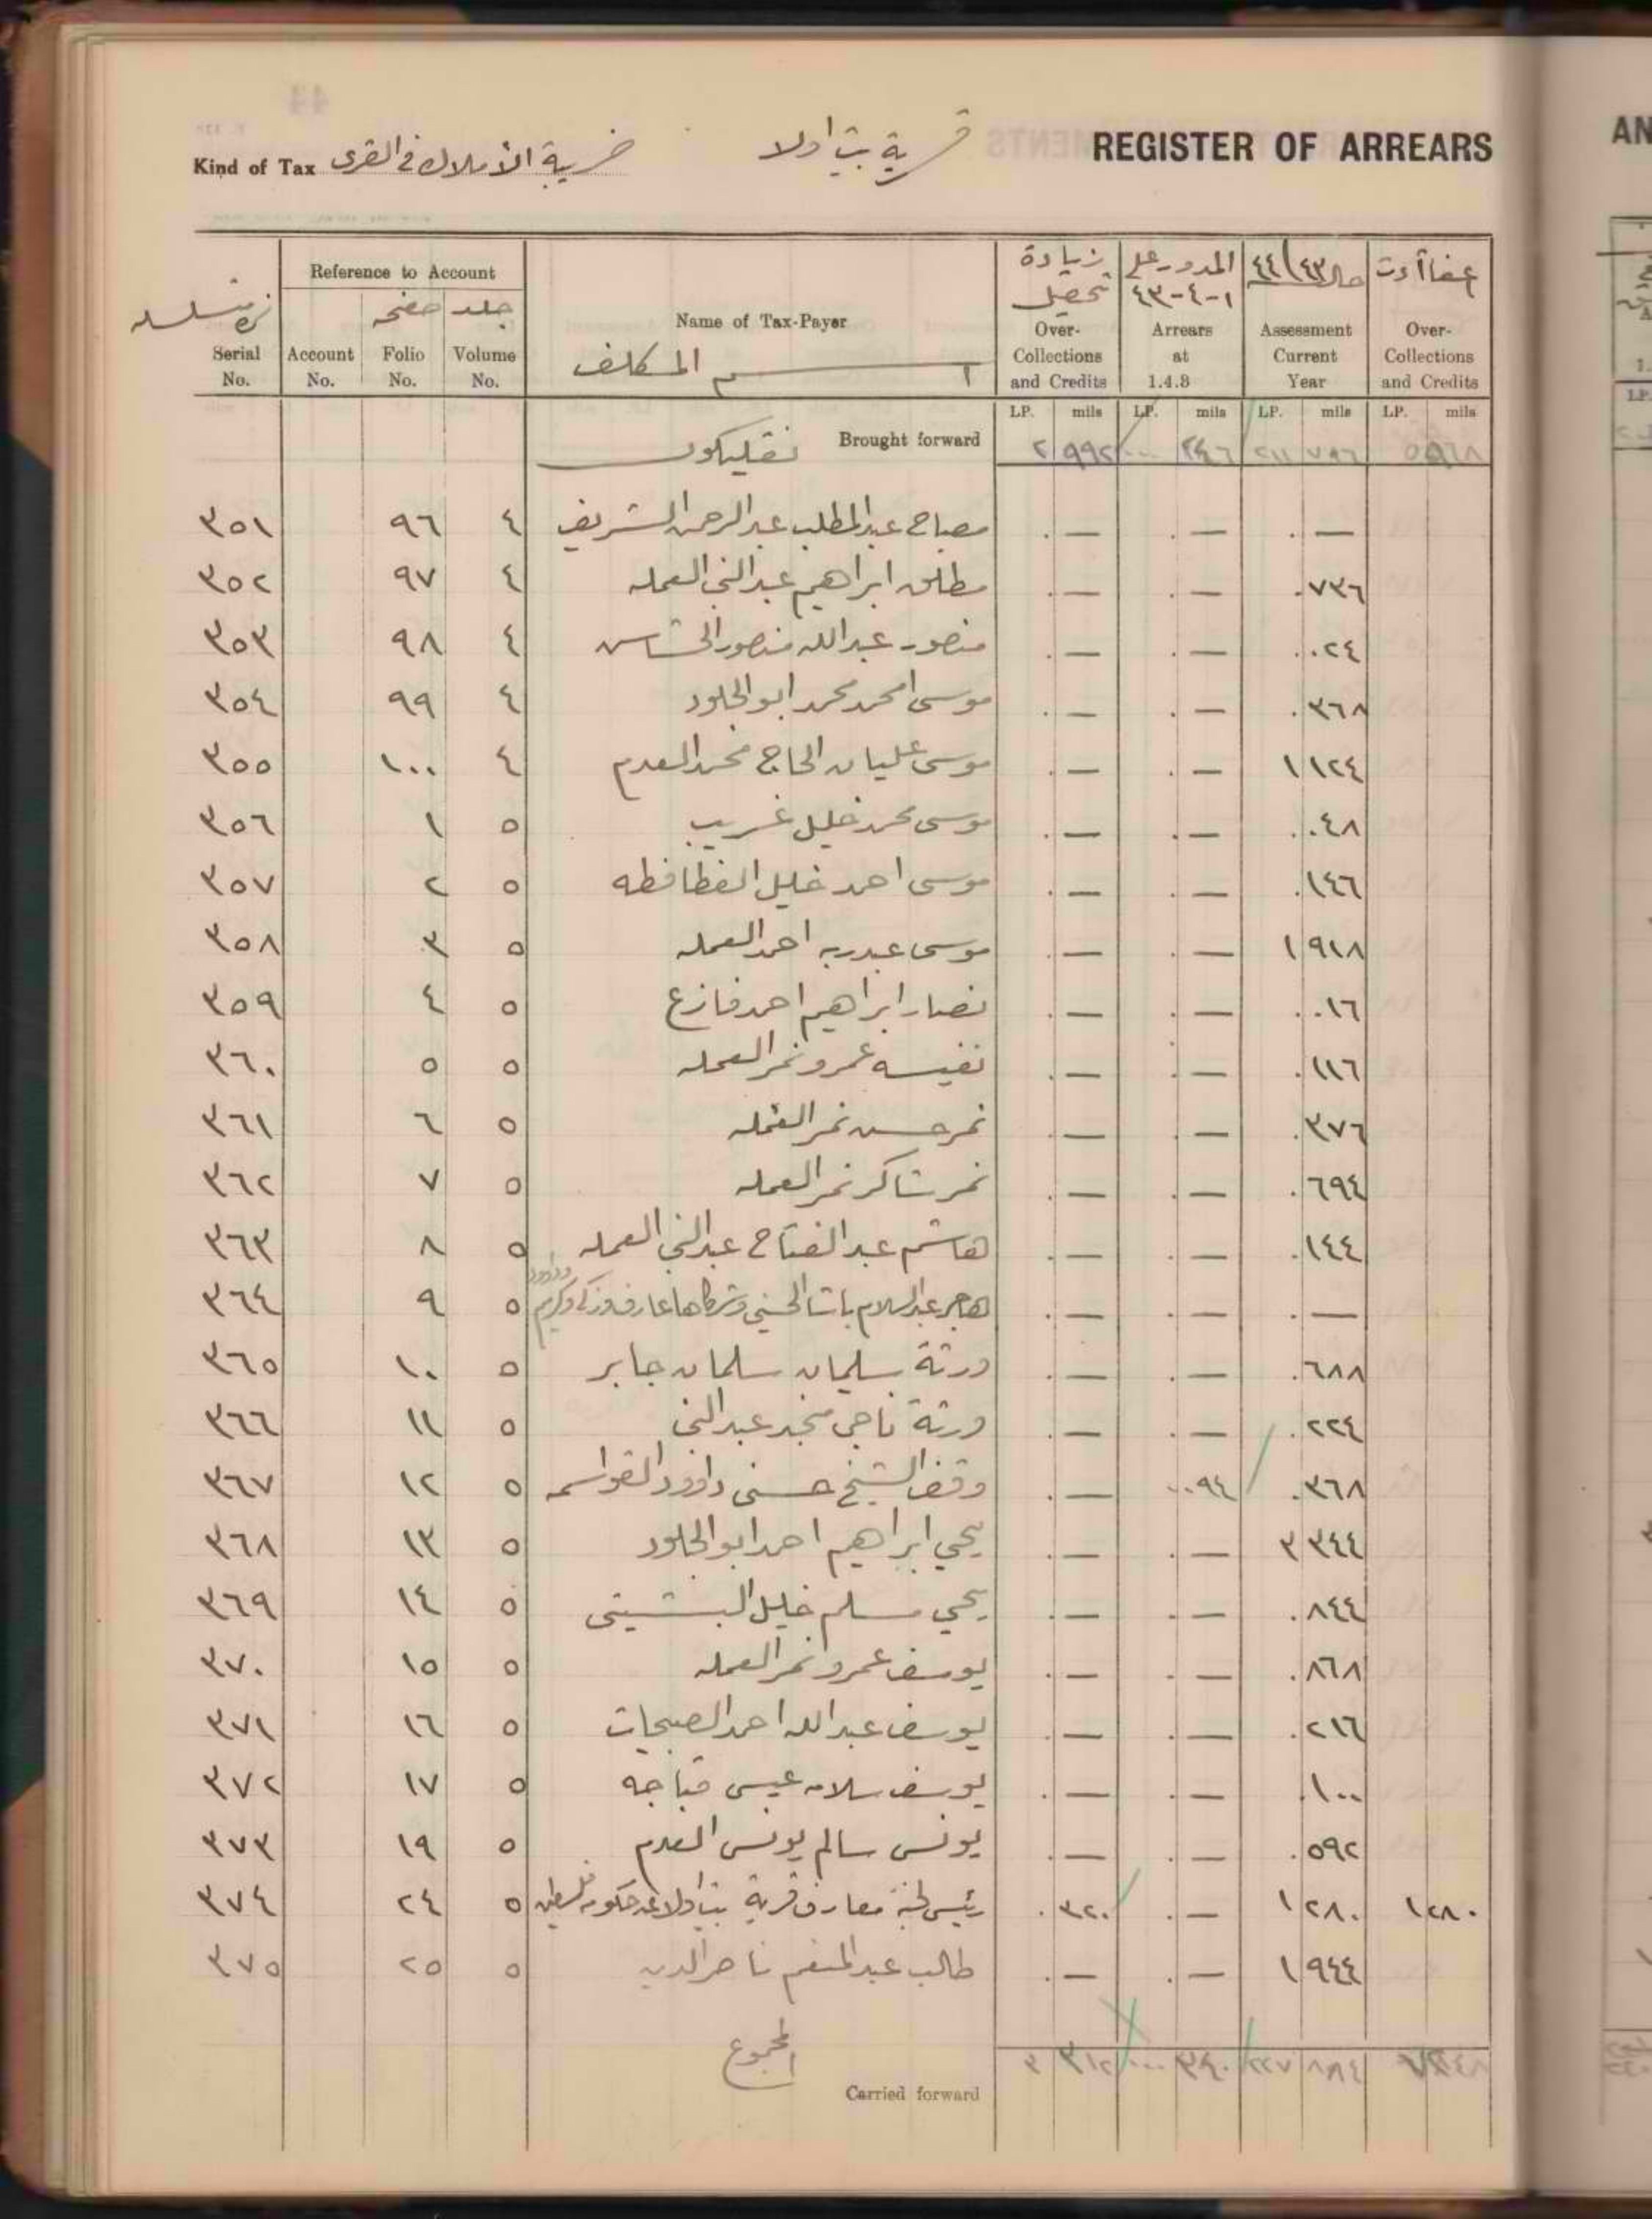 REGISTER OF ARREARS
قرية بيت اولا
Kind of Tax ضريبة الأملاك في القرى
Reference to Account
Serial No. Account No. صفحه Folio No. جلد Volume No.
Name of Tax-Payer
اسم المكلف
زيادة تحصيل Over-Collections and Credits
المدور على ١-٤-٤٣ Arrears at 1.4.8
٤٤/٤٣ Assessment Current Year
Over-Collections and Credits
LP. mils LP. mils LP. mils LP. mils
Brought forward ٢ ٩٩٢ ... ٢٤٦ ٢١١ ٧٨٦
٣٥١ ٩٦ ٤ مصباح عبد المطلب عبد الرحمن الشريف . — . — . —
٣٥٢ ٩٧ ٤ مطلق ابراهيم عبد النبي العمله . — . — . ٧٣٦
٣٥٣ ٩٨ ٤ منصور عبد الله منصور . — . — . .٢٤
٣٥٤ ٩٩ ٤ موسى امحمد محمد ابو الجلود . — . — . ٣٦٨
٣٥٥ ١٠٠ ٤ موسى عليان الحاج محمد العدم . — . — ١ ١٢٤
٣٥٦ ١ ٥ موسى محمد خليل غريب . — . — . .٤٨
٣٥٧ ٢ ٥ موسى احمد خليل الفطافطه . — . — . ١٤٦
٣٥٨ ٣ ٥ موسى عبدربه احمد العمله . — . — ١ ٩١٨
٣٥٩ ٤ ٥ نصار ابراهيم احمد فازع . — . — . .١٦
٣٦٠ ٥ ٥ نفيسه عمرو نمر العمله . — . — . ١١٦
٣٦١ ٦ ٥ نمر حسن نمر العمله . — . — . ٣٧٦
٣٦٢ ٧ ٥ نمر شاكر نمر العمله . — . — . ٦٩٤
٣٦٣ ٨ ٥ هاشم عبد الفتاح عبد النبي العمله . — . — . ١٤٤
٣٦٤ ٩ ٥ هاجر عبد السلام باشا الحسيني وشركاها عارف وزكي وكريم . — . — . —
٣٦٥ ١٠ ٥ ورثة سليمان سلمان جابر . — . — . ٦٨٨
٣٦٦ ١١ ٥ ورثة ناجي منجد عبد النبي . — . — . ٢٢٤
٣٦٧ ١٢ ٥ وقف الشيخ حسني داوود القواسمه . — . .٩٤ . ٣٦٨
٣٦٨ ١٣ ٥ يحيي ابراهيم احمد ابو الجلود . — . — ٣ ٣٤٤
٣٦٩ ١٤ ٥ يحيي مسلم خليل البشيتي . — . — . ٨٤٤
٣٧٠ ١٥ ٥ يوسف عمرو نمر العمله . — . — . ٨٦٨
٣٧١ ١٦ ٥ يوسف عبد الله احمد . — . — . ٢١٦
٣٧٢ ١٧ ٥ يوسف سلامه عيسى قباجه . — . — . ١٠٠
٣٧٣ ١٩ ٥ يونس سالم يونس العدم . — . — . ٥٩٢
٣٧٤ ٢٤ ٥ رئيس لجنة معارف قرية بيت اولا عن حكومة فلسطين . ٣٢٠ . — ١ ٢٨٠ ١ ٢٨٠
٣٧٥ ٢٥ ٥ طالب عبد المنعم ناصر الدين . — . — ١ ٩٤٤
المجموع
Carried forward ٣ ٣١٢ ... ٣٤٠ ٢٢٧ ٨٨٤